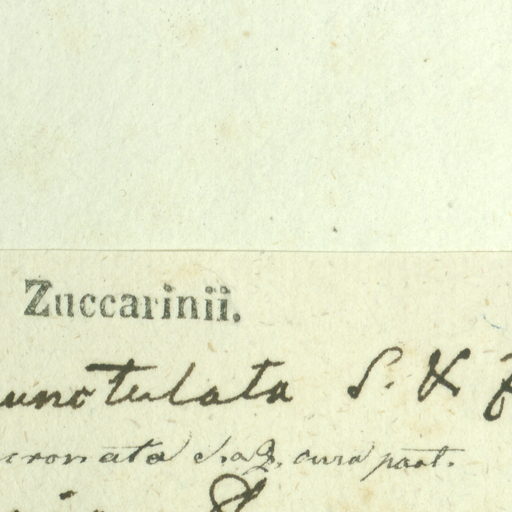 Zuccarinii.
unctulata S. & Z
cronata S. a Z. cum part.